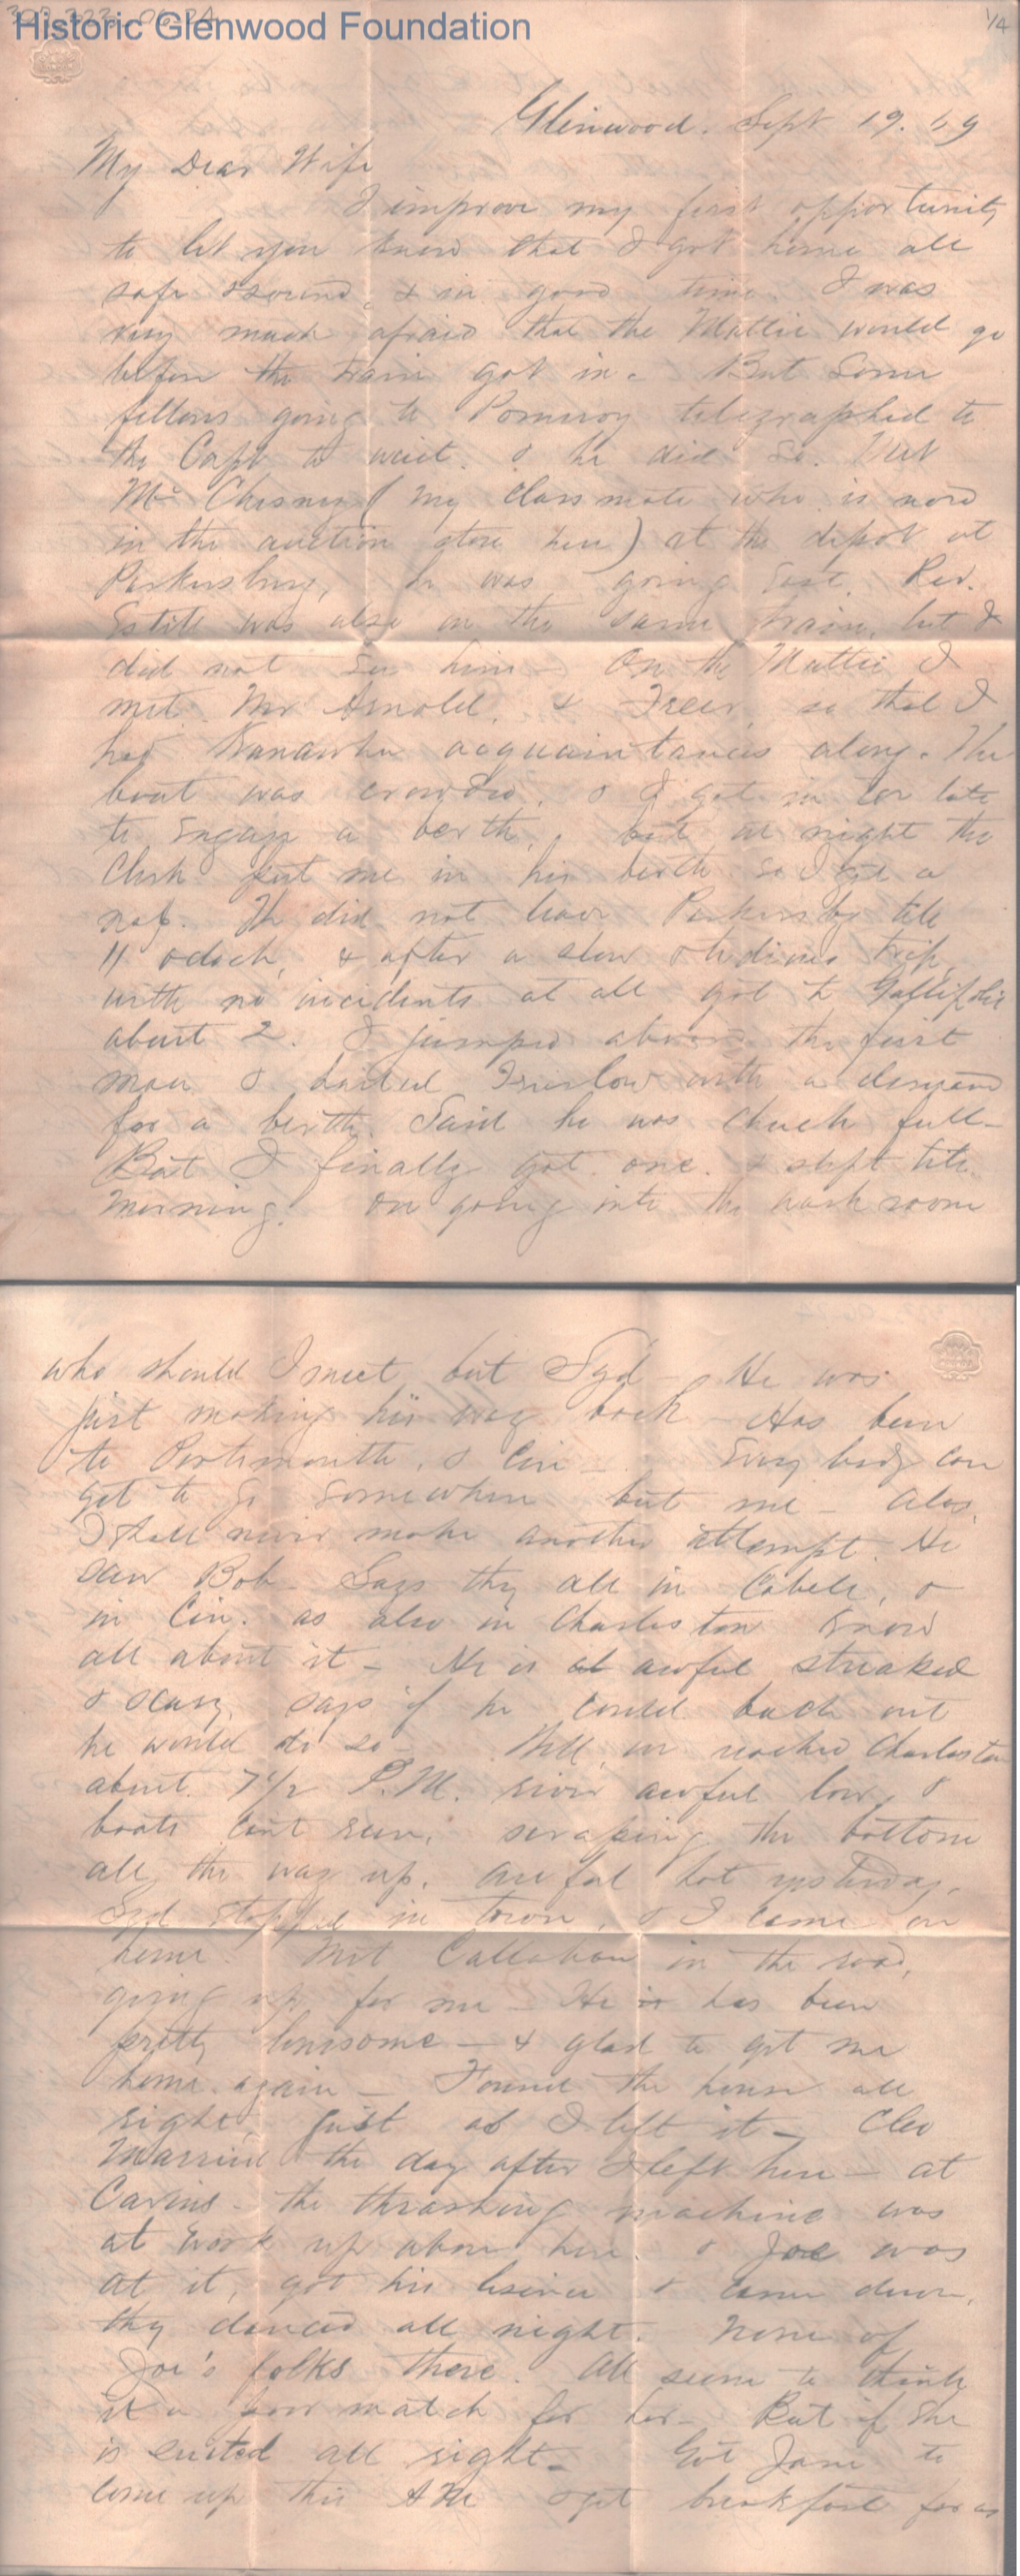 Historic Glenwood Foundation
1/4
Glenwood. Sept 19. 69
My Dear Wife
I improve my first opportunity
to let you know that I got home all
safe & sound, & in good time. I was
very much afraid that the Mattie would go
before the train got in - But some
fellows going to Pomeroy telegraphed to
the Capt to wait. & he did so. Met
Mc Chesney (my classmate who is now
in the auction store here) at the depot at
Parkersburg, he was going East. Rev.
was also on the same train, but I
did not see him - On the Mattie I
met Mr Arnold, & Freer, so that I
had Kanawha acquaintances along. The
boat was crowded, & I got in too late
to engage a berth, but at night the
Clerk put me in his berth so I got a
nap. We did not leave Parkersbg till
11 oclock, & after a slow tedious trip,
with no incidents at all got to Gallipolis
about 2. I jumped aboard the first
man & hailed with a demand
for a berth. Said he was chuck full -
But I finally got one. & slept till
morning. On going into the wash room
who should I meet but Syd - He was
just making his way back - Has been
to Portsmouth, & Cin - Every body can
get to go somewhere but me - Alas,
I shall never make another attempt. He
saw Bob - Says they all in Cabell, &
in Cin. as also in Charleston know
all about it - He is awful streaked
& scary, says if he could back out
he would do so - Well, we reached Charleston
about 7 1/2 P.M. river awful low, &
boats cant run, scraping the bottom
all the way up. Awful hot yesterday.
Syd stopped in town, & I came on
home. Met Callahan in the road,
going up for me - He has been
pretty lonesome - & glad to get me
home again - Found the house all
right, just as I left it - Cleo
Married the day after I left here - at
Carins - the thrashing machine was
at work up above here. & Joe was
at it, got his license & came down,
they danced all night. None of
Joe's folks there. All seem to think
it a poor match for her - But if she
is suited all right - Got Jane to
come up this AM & get breakfast for us